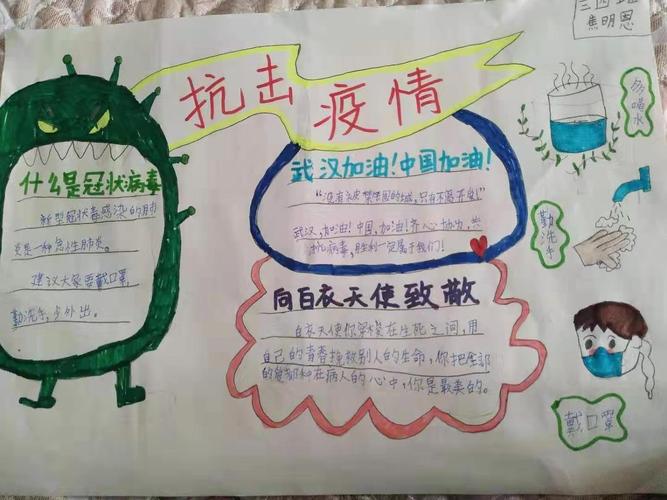 焦明恩
抗击疫情
什么是冠状病毒
新型冠状毒感染的肺
炎是一种急性肺炎。
建议大家要戴口罩,
勤洗手,少外出。
武汉加油!中国加油!
"没有 的城,只有不
武汉,加油!中国,加油!齐心协力,共
抗病毒,胜利一定属于我们!
向白衣天使致敬
白衣天使你穿梭在生死之间,用
自己的青春挽救别人的生命,你把全部
的爱都种在病人的心中,你是最美的。
多喝水
勤洗手
戴口罩